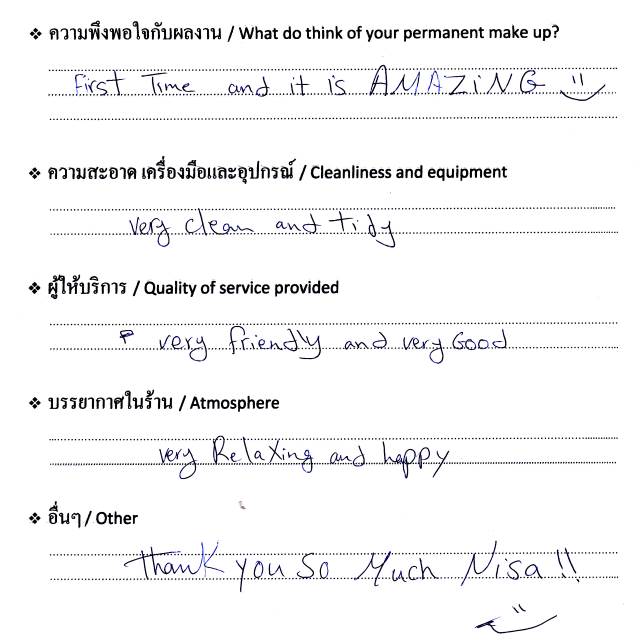 ❖ ความพึงพอใจกับผลงาน / What do think of your permanent make up?
First Time and it is AMAZiNG
❖ ความสะอาด เครื่องมือและอุปกรณ์ / Cleanliness and equipment
very clean and tidy
❖ ผู้ให้บริการ / Quality of service provided
very friendly and very Good
❖ บรรยากาศในร้าน / Atmosphere
very Relaxing and happy
❖ อื่นๆ / Other
thank you so Much Nisa!!